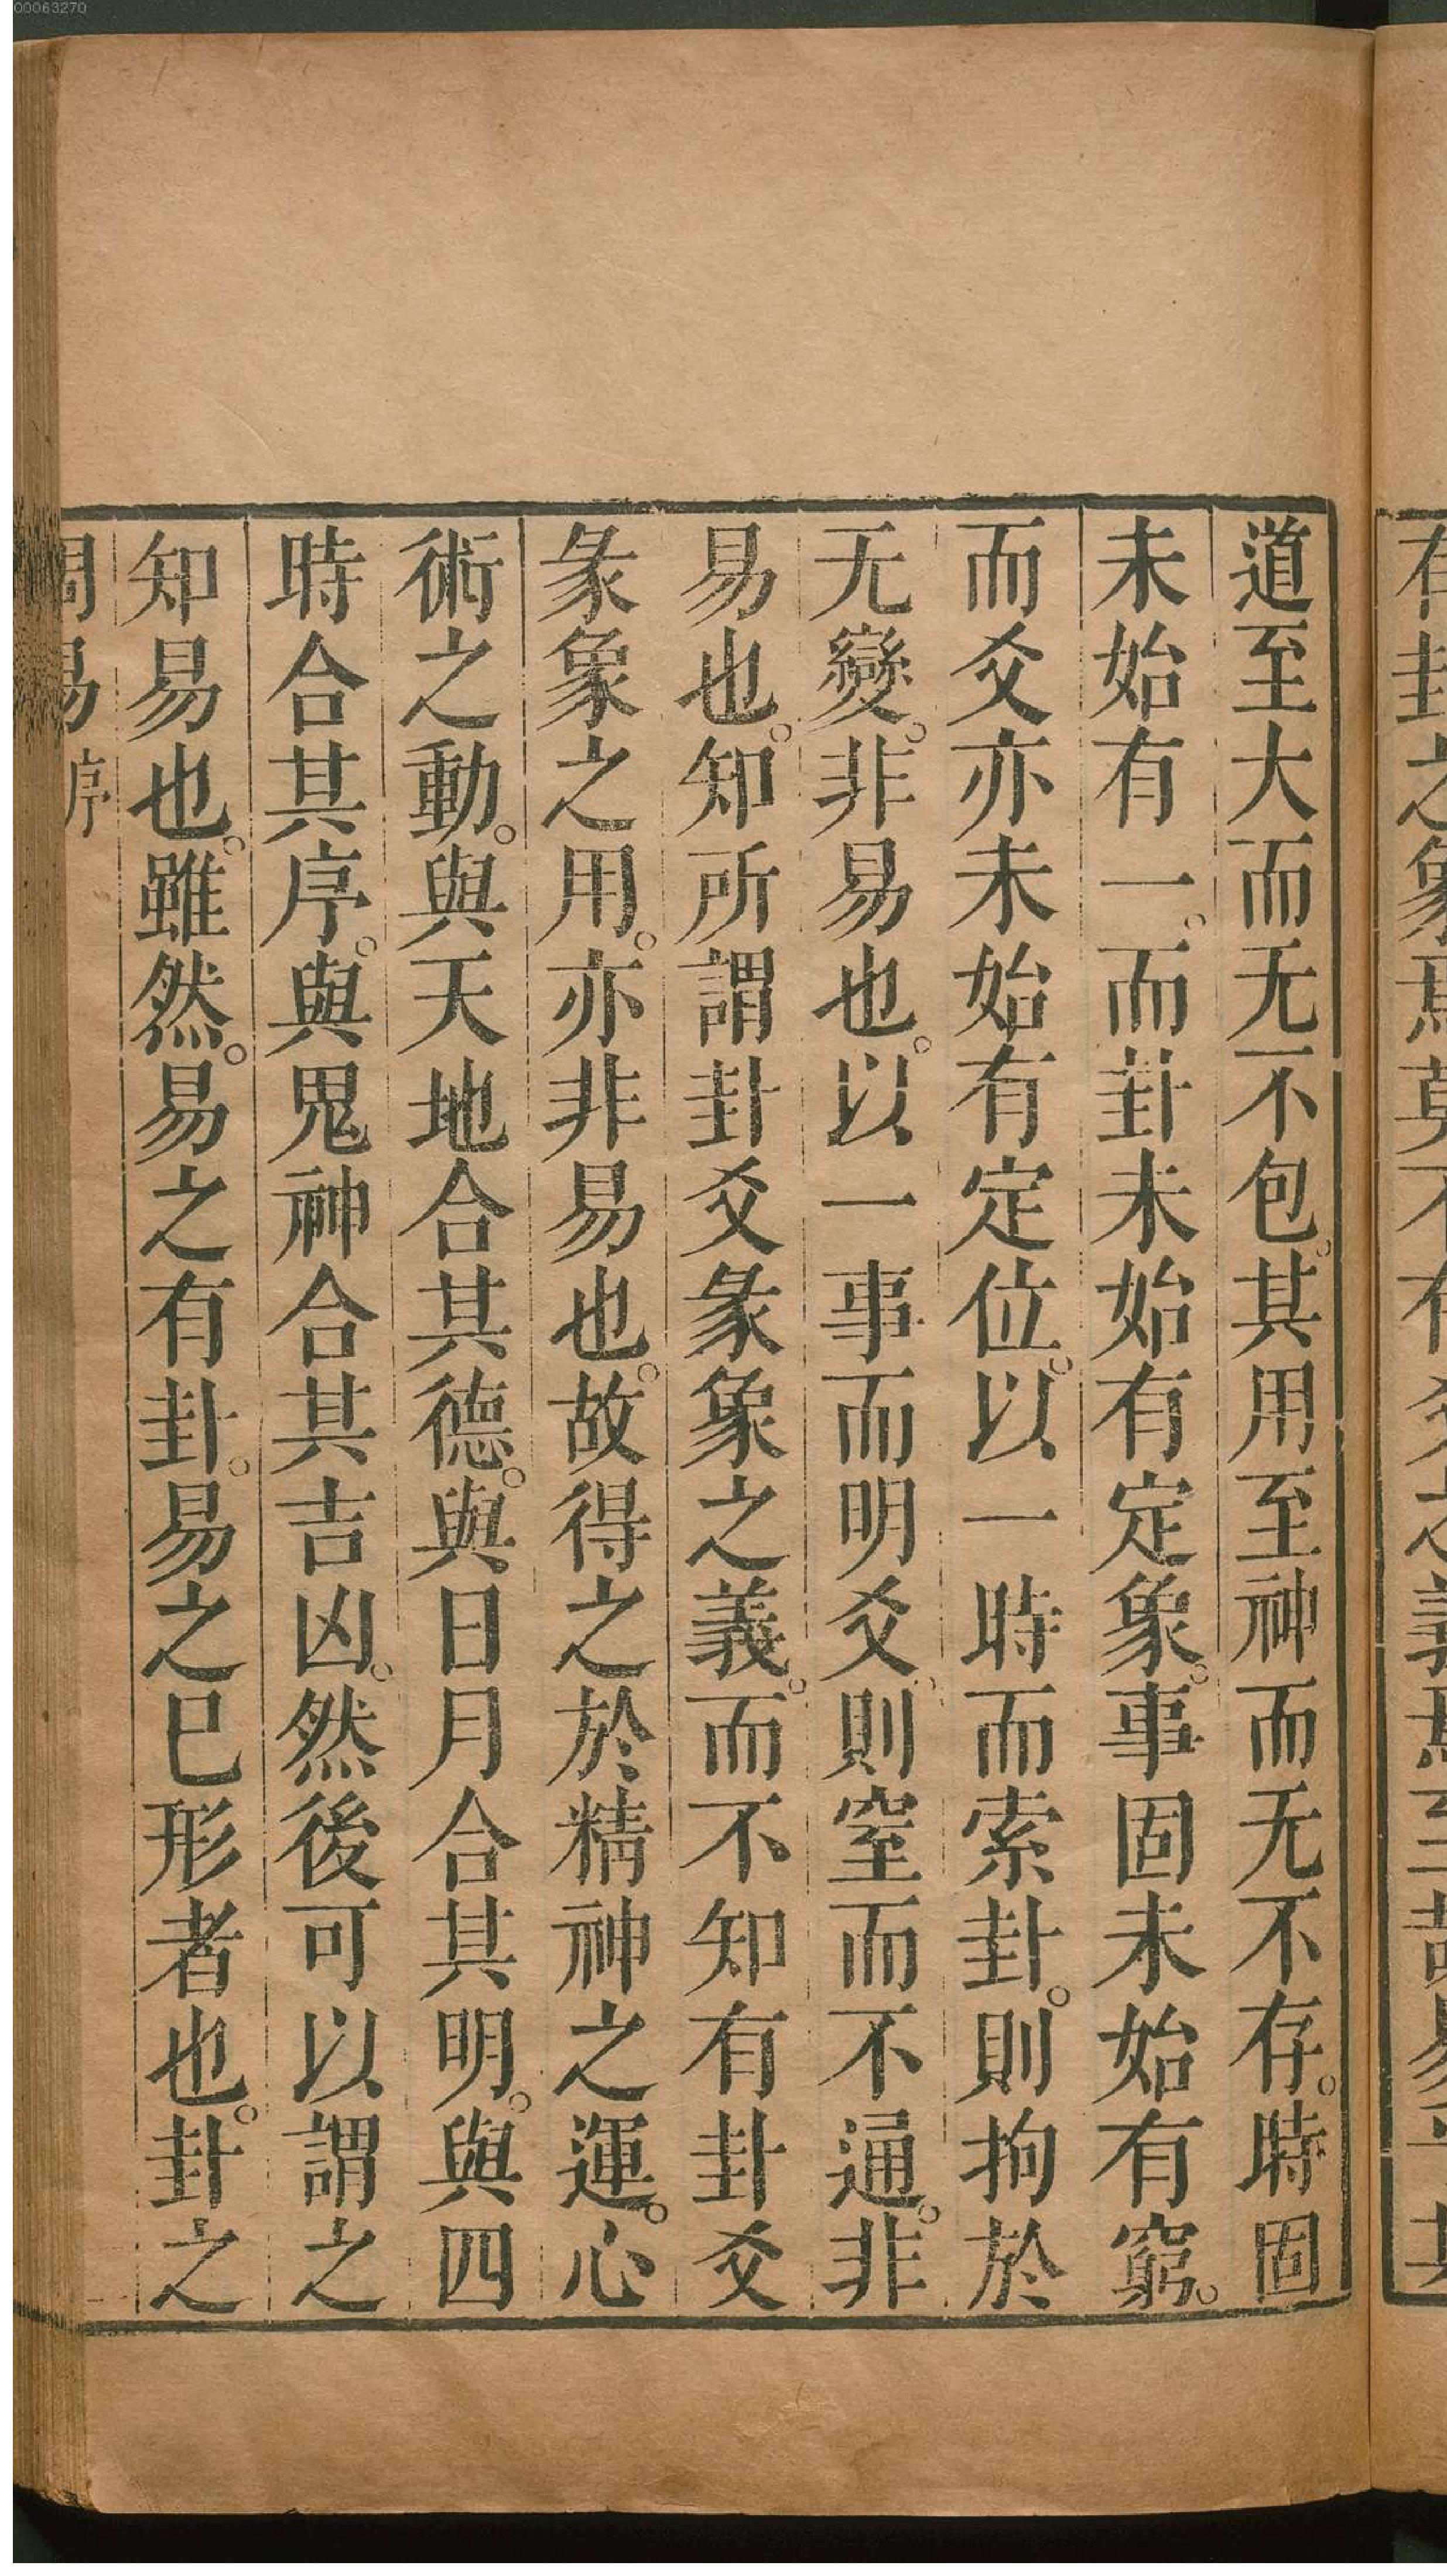 00063270
道至大而无不包。其用至神而无不存。時固
未始有一。而卦未始有定象。事固未始有窮。
而爻亦未始有定位。以一時而索卦。則拘於
无變。非易也。以一事而明爻。則窒而不通。非
易也。知所謂卦爻彖象之義。而不知有卦爻
彖象之用。亦非易也。故得之於精神之運。心
術之動。與天地合其德。與日月合其明。與四
時合其序。與鬼神合其吉凶。然後可以謂之
知易也。雖然。易之有卦。易之已形者也。卦之
周易序